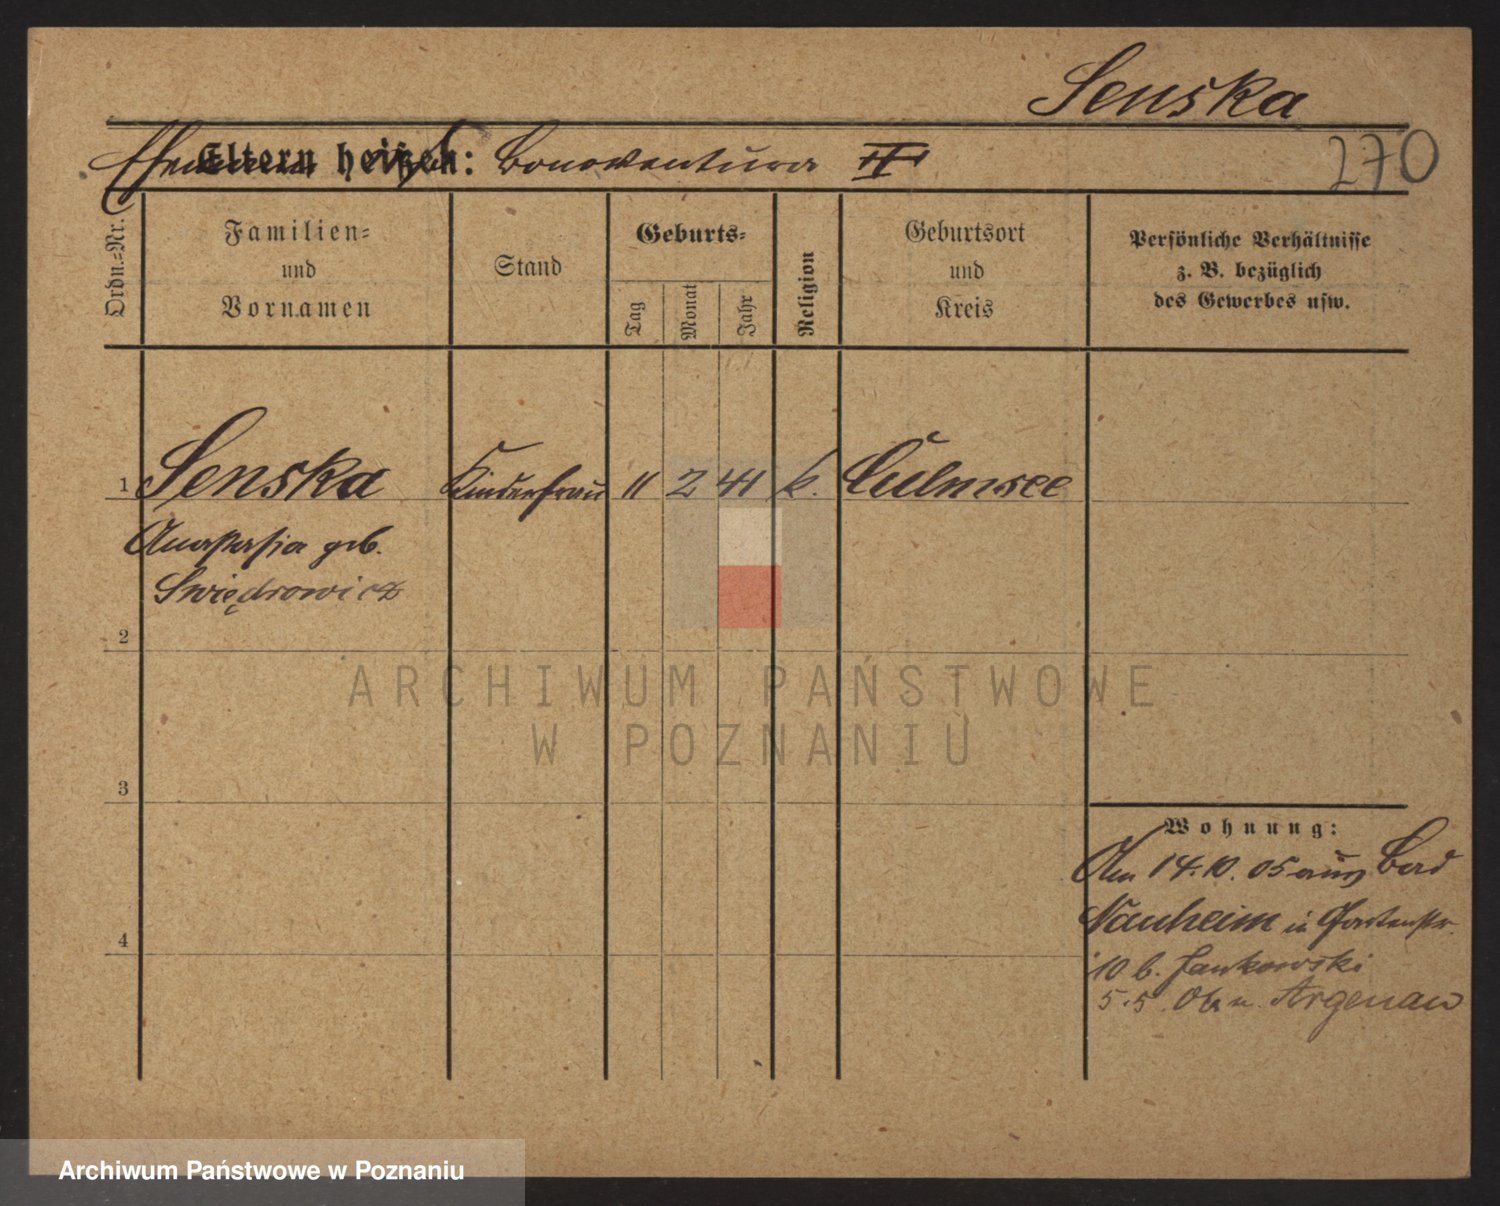 Senska
Eltern heißen: Bonaventura II
270
Ordn.-Nr.
Familien-
und
Vornamen
Stand
Geburts-
Tag
Monat
Jahr
Religion
Geburtsort
und
Kreis
Persönliche Verhältnisse
z. B. bezüglich
des Gewerbes usw.
1 Senska Kinderfrau 11 2 41 k. Culmsee
Anastasia geb.
Swiędrowicz
2
3
4
Wohnung:
Am 14.10.05 aus Bad
Nauheim in Gartenstr.
10 b. Jankowski
5.5. n. Argenau
ARCHIWUM PAŃSTWOWE
W POZNANIU
Archiwum Państwowe w Poznaniu